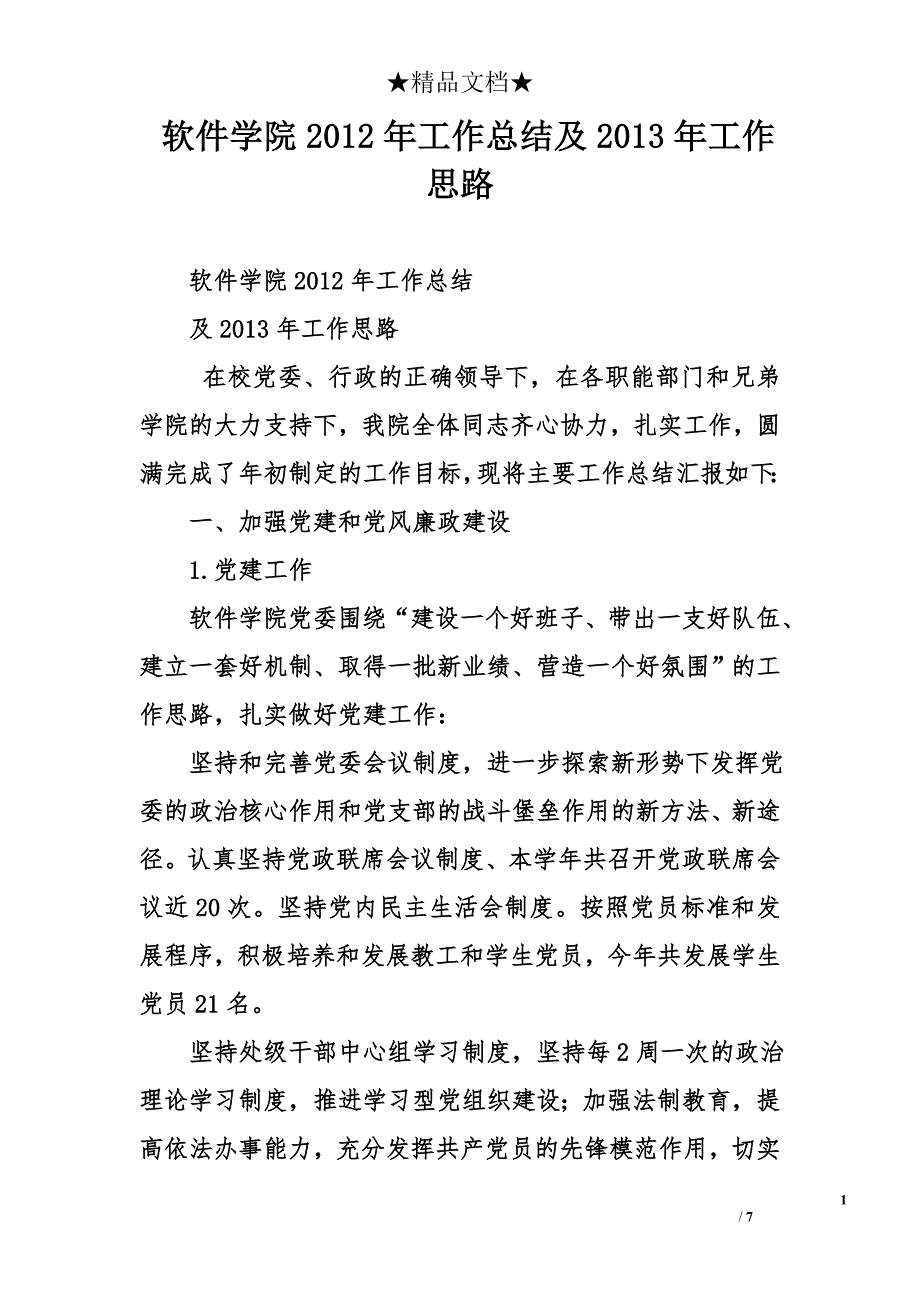 ★精品文档★
软件学院 2012 年工作总结及 2013 年工作
思路
软件学院 2012 年工作总结
及 2013 年工作思路
在校党委、行政的正确领导下，在各职能部门和兄弟
学院的大力支持下，我院全体同志齐心协力，扎实工作，圆
满完成了年初制定的工作目标，现将主要工作总结汇报如下：
一、加强党建和党风廉政建设
1.党建工作
软件学院党委围绕“建设一个好班子、带出一支好队伍、
建立一套好机制、取得一批新业绩、营造一个好氛围”的工
作思路，扎实做好党建工作：
坚持和完善党委会议制度，进一步探索新形势下发挥党
委的政治核心作用和党支部的战斗堡垒作用的新方法、新途
径。认真坚持党政联席会议制度、本学年共召开党政联席会
议近 20 次。坚持党内民主生活会制度。按照党员标准和发
展程序，积极培养和发展教工和学生党员，今年共发展学生
党员 21 名。
坚持处级干部中心组学习制度，坚持每 2 周一次的政治
理论学习制度，推进学习型党组织建设；加强法制教育，提
高依法办事能力，充分发挥共产党员的先锋模范作用，切实
1
/ 7